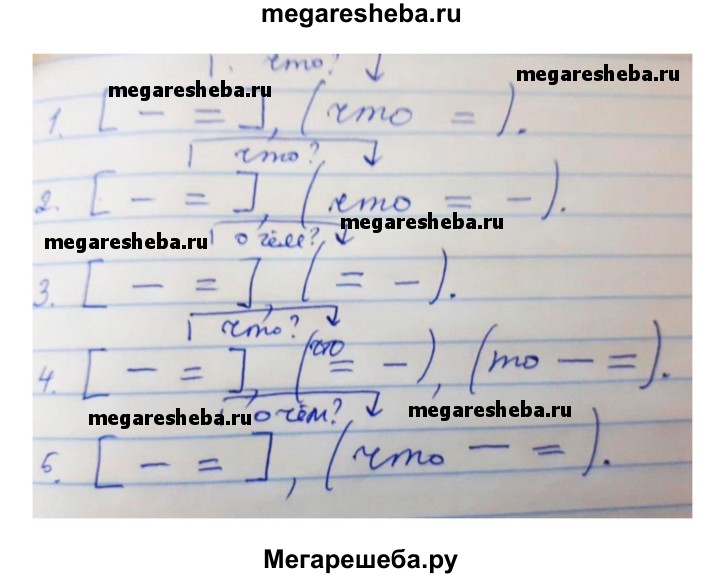 megaresheba.ru
что?
megaresheba.ru
megaresheba.ru
1. [ — = ], (что = ).
что?
2. [ — = ], (что = — ).
megaresheba.ru
megaresheba.ru
о чём?
3. [ — = ], ( = — ).
что?
4. [ — = ], (что = — ), (то — = ).
megaresheba.ru
megaresheba.ru
о чём?
5. [ — = ], (что — = ).
Мегарешеба.ру